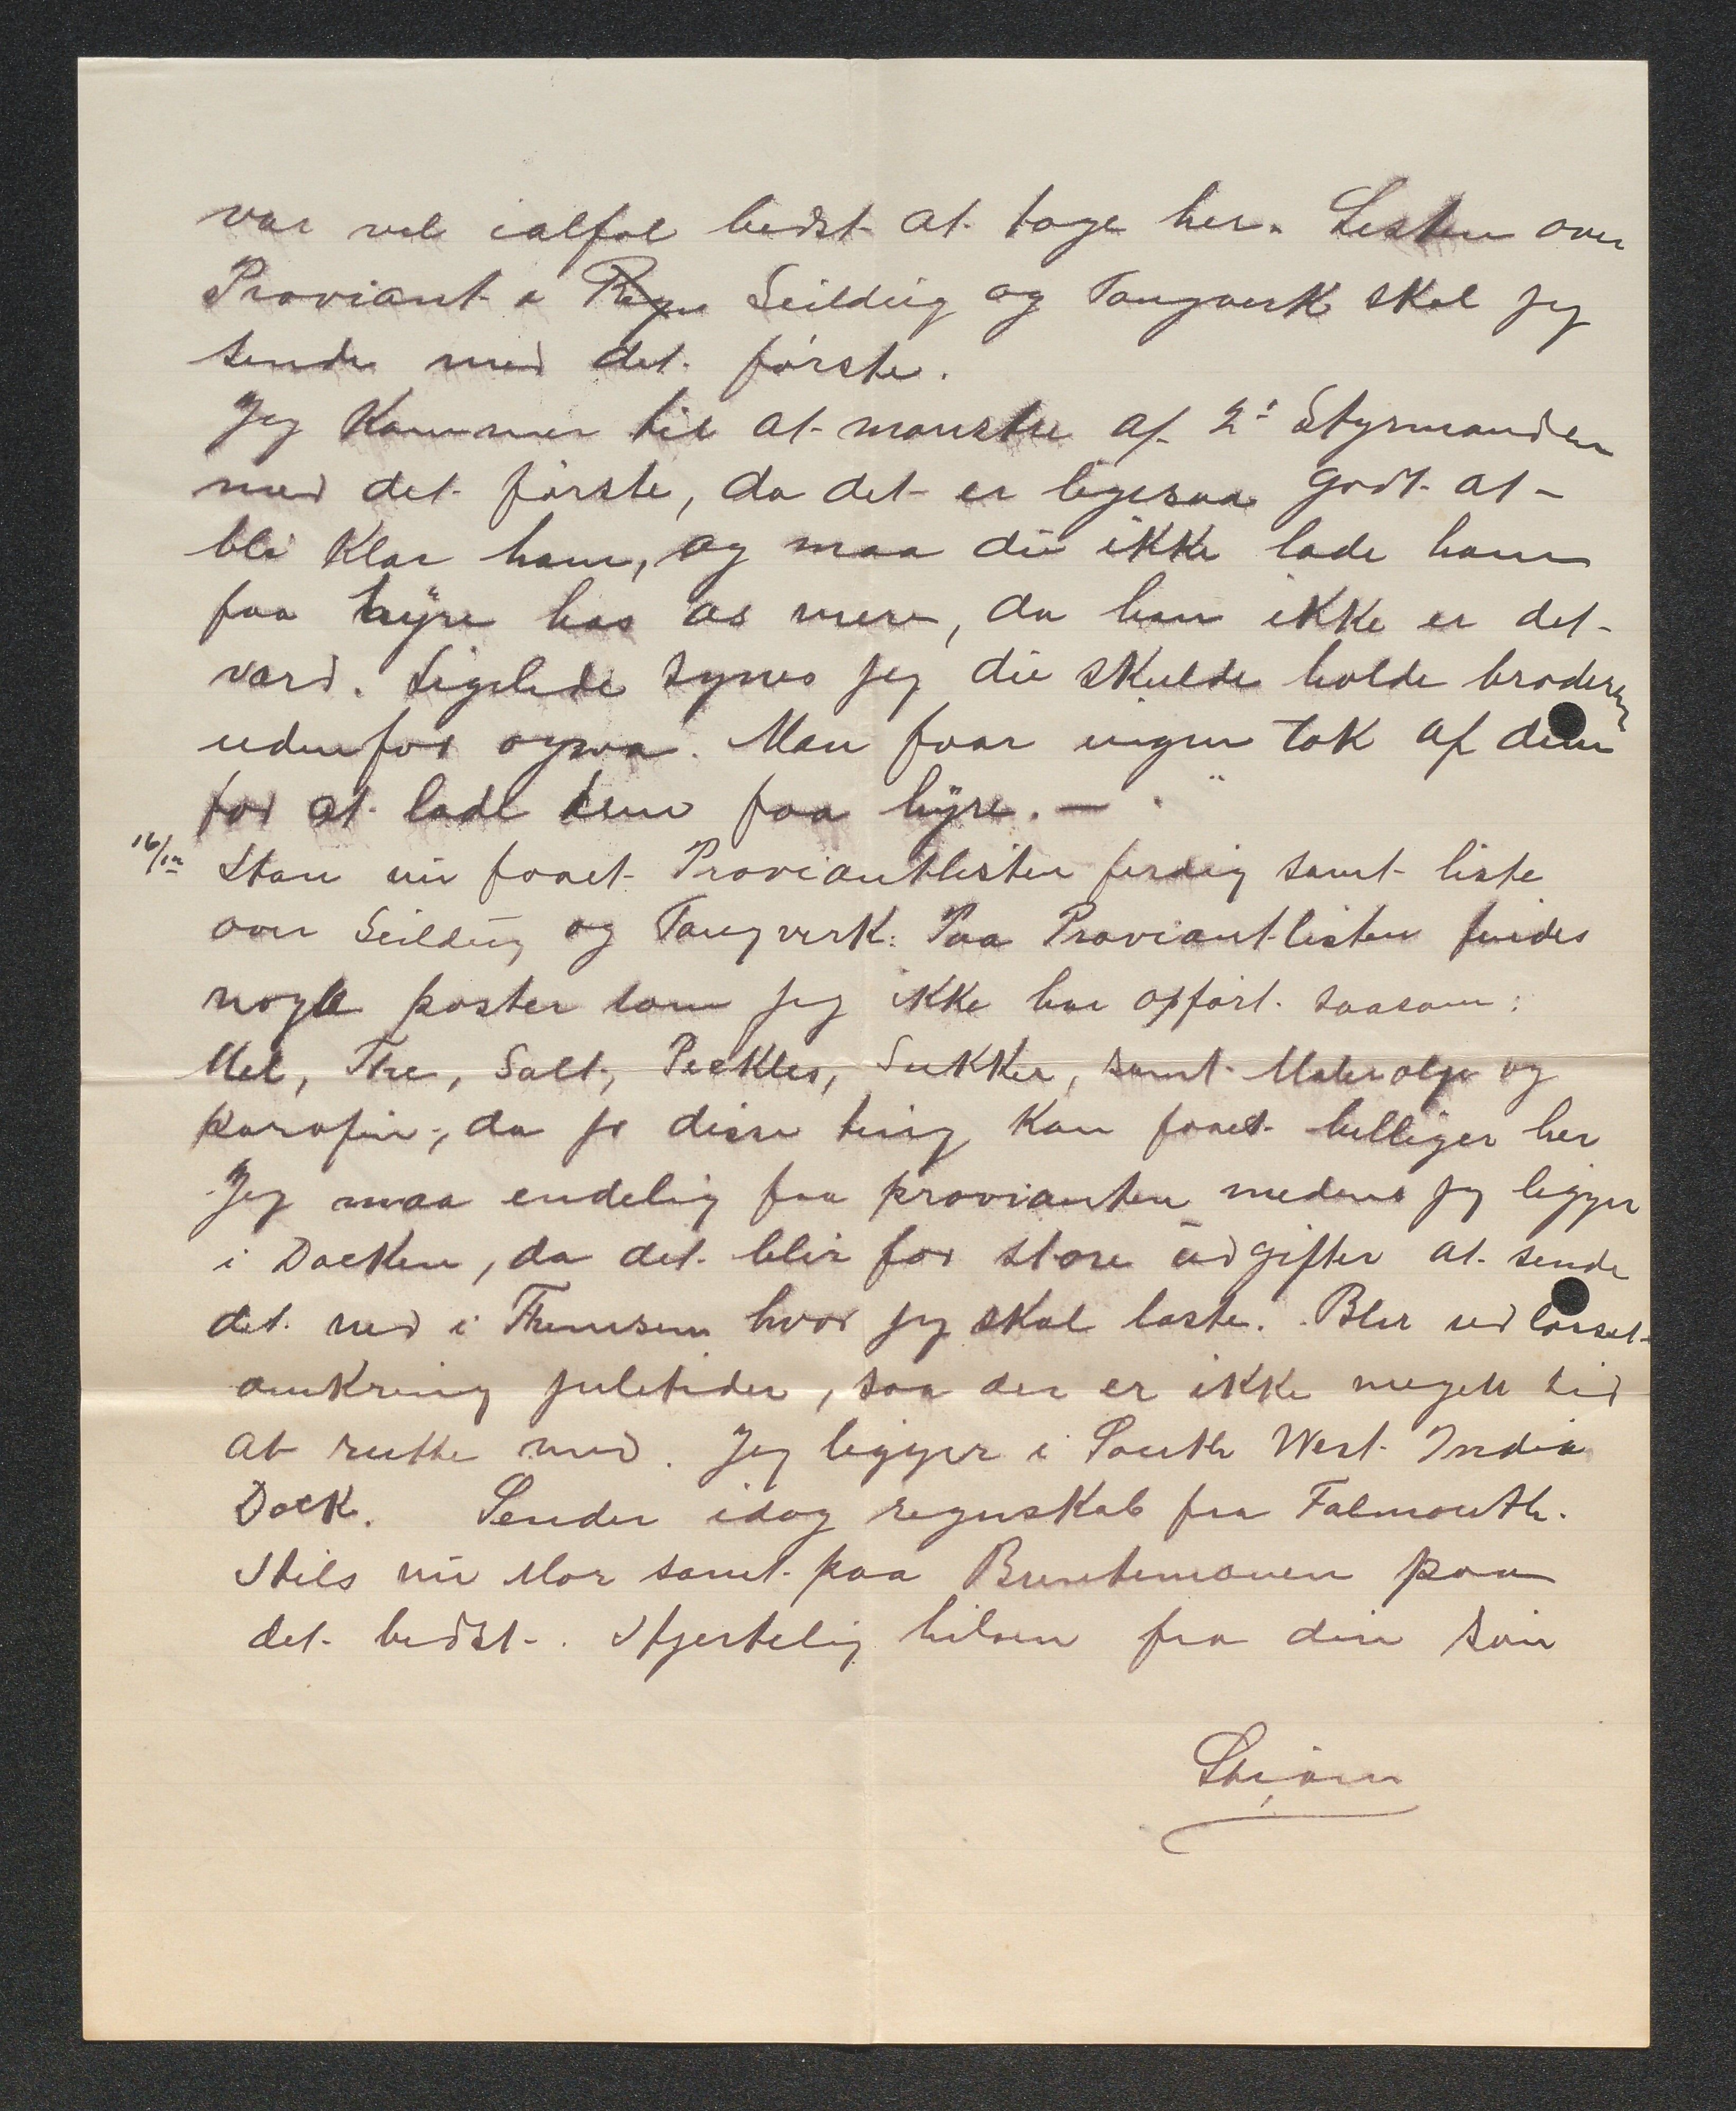 var vel ialfal bedst at tage her. Listen over
Proviant Seildug og Tougverk skal jeg
sende med det første.
Jeg Kommer til at mønstre af 2' Styrmanden
med det første, da det er ligesaa godt at
bli Klar ham, og maa du ikke lade ham
faa hyre hos os mere, da han ikke er det
værd. Ligeledе synes jeg du skulde holde broderen
udenfor ogsaa. Man faar ingen tak af dem
for at lade dem faa hyre. —
16/12 Har nu faaet Proviantlisten ferdig samt liste
over Seildug og Tougverk. Paa Proviantlisten findes
nogle poster som jeg ikke har opført saasom:
Mel, The, Salt, Peekles, Sukker, samt Malerolje og
parafin, da jo disse ting Kan faaes billiger her
Jeg maa endelig faa provianten medens jeg ligger
i Docken, da det blir for store udgifter at sende
det ned i Themsen hvor jeg skal laste. Blir udlosset
omkring juletider, saa der er ikke meget tid
at rutte med. Jeg ligger i South West India
Dock. Sender idag regnskab fra Falmouth.
Hils nu Mor samt paa Bruntemouen paa
det bedst. Hjertelig hilsen fra din søn